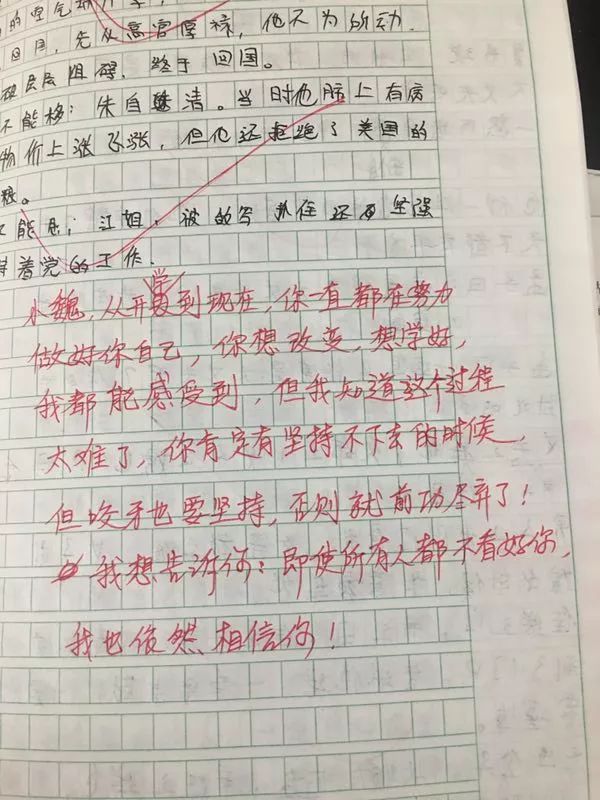 的空气
回国，先从高官厚禄，他不为所动.
层层阻碍，终于回国。
不能移：朱自清。当时他肺上有病
物价上涨飞涨，但他还拒绝了美国的
粮。
不能屈；江姐，被的写 还 坚强
着党的工作.
小魏，从开学到现在，你一直都在努力
做好你自己，你想改变，想学好，
我都能感受到，但我知道这个过程
太难了，你肯定有坚持不下去的时候，
但咬牙也要坚持，否则就前功尽弃了！
我想告诉你：即使所有人都不看好你，
我也依然相信你！